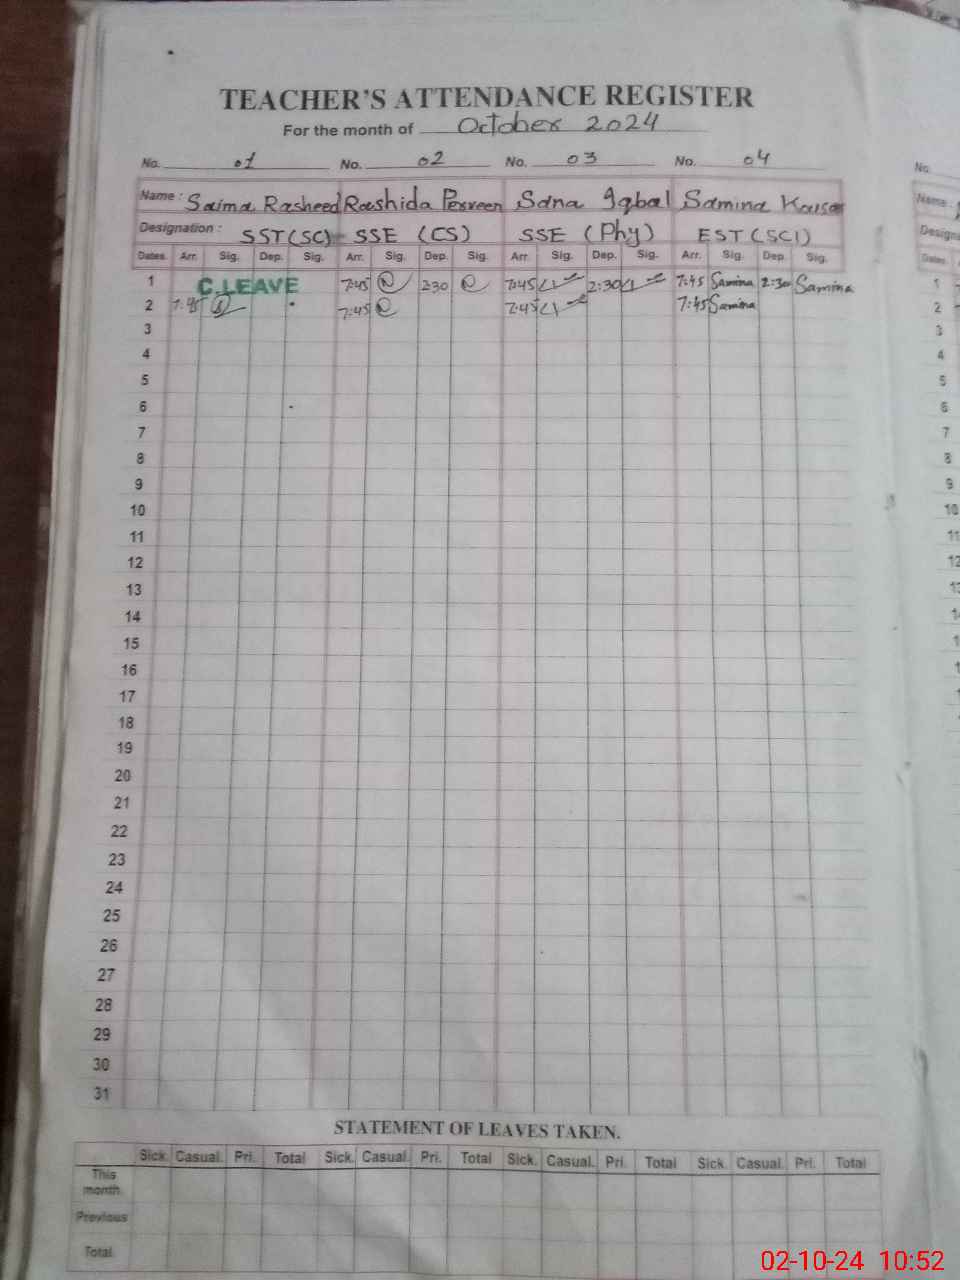 TEACHER'S ATTENDANCE REGISTER
For the month of October 2024
No. 01 No. 02 No. 03 No. 04 No.
Name : Saima Rasheed Rashida Perveen Sana Iqbal Samina Kausar Name :
Designation : SST(SC) SSE (CS) SSE (Phy) EST (SCI)
Dates. Arr. Sig. Dep. Sig. Arr. Sig. Dep. Sig. Arr. Sig. Dep. Sig. Arr. Sig. Dep. Sig. Dates.
1 C.LEAVE 7:45 2:30 7:45 2:30 7:45 Samina 2:30 Samina 1
2 7:45 7:45 7:45 7:45 Samina 2
3 3
4 4
5 5
6 6
7 7
8 8
9 9
10 10
11 11
12 12
13
14
15
16
17
18
19
20
21
22
23
24
25
26
27
28
29
30
31
STATEMENT OF LEAVES TAKEN.
Sick. Casual. Pri. Total Sick. Casual. Pri. Total Sick. Casual. Pri. Total Sick. Casual. Pri. Total
This month
Previous
Total
02-10-24 10:52